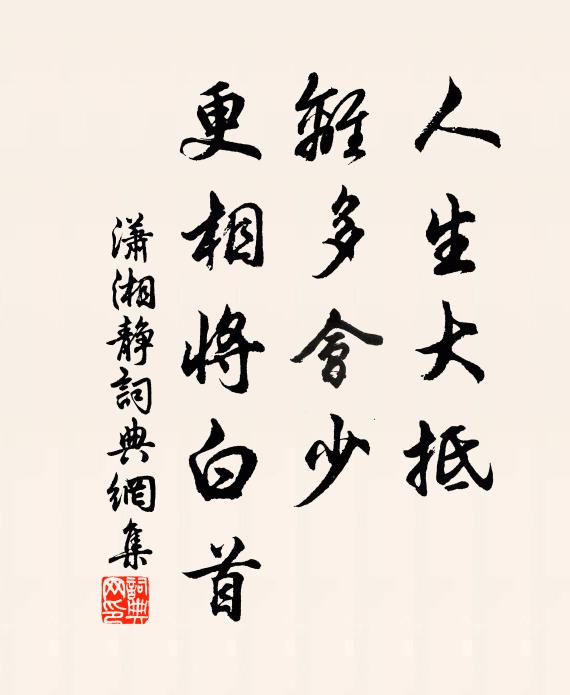 人生大抵
離多會少
更相將白首
瀟湘静詞典網集
詞典网印